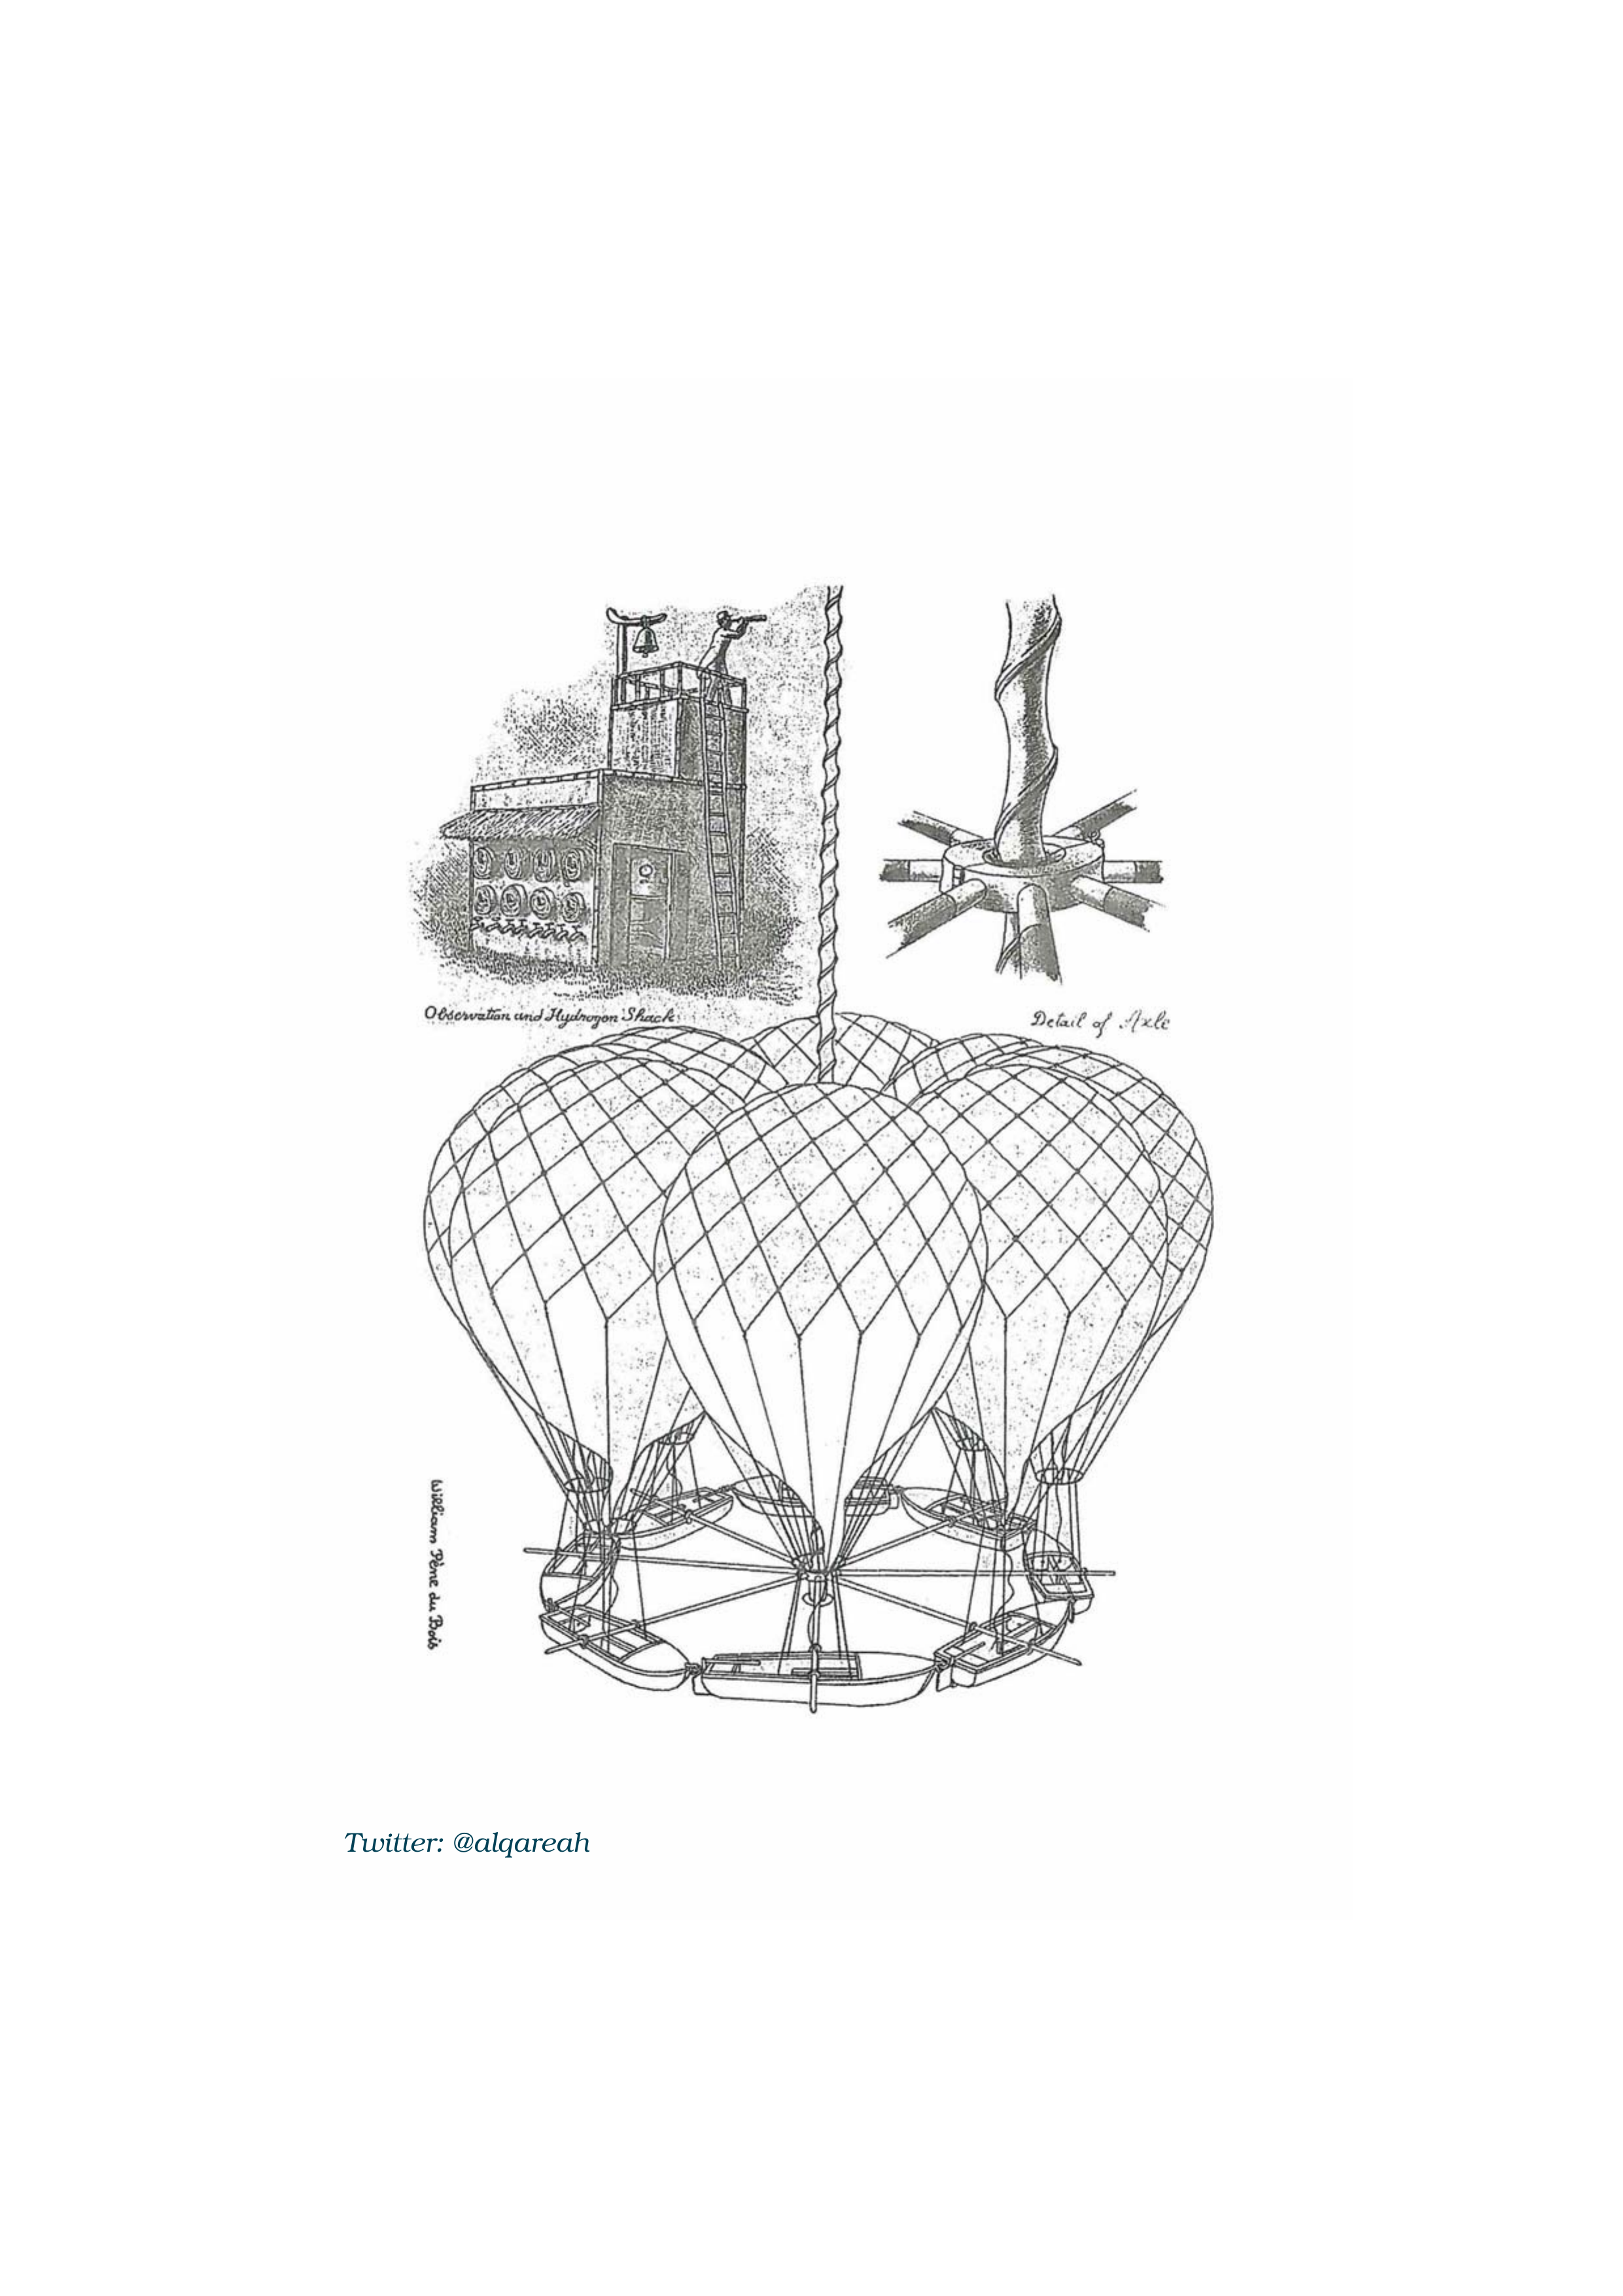 Observation and Hydrogen Shack
Detail of Axle
William Pène du Bois
Twitter: @alqareah